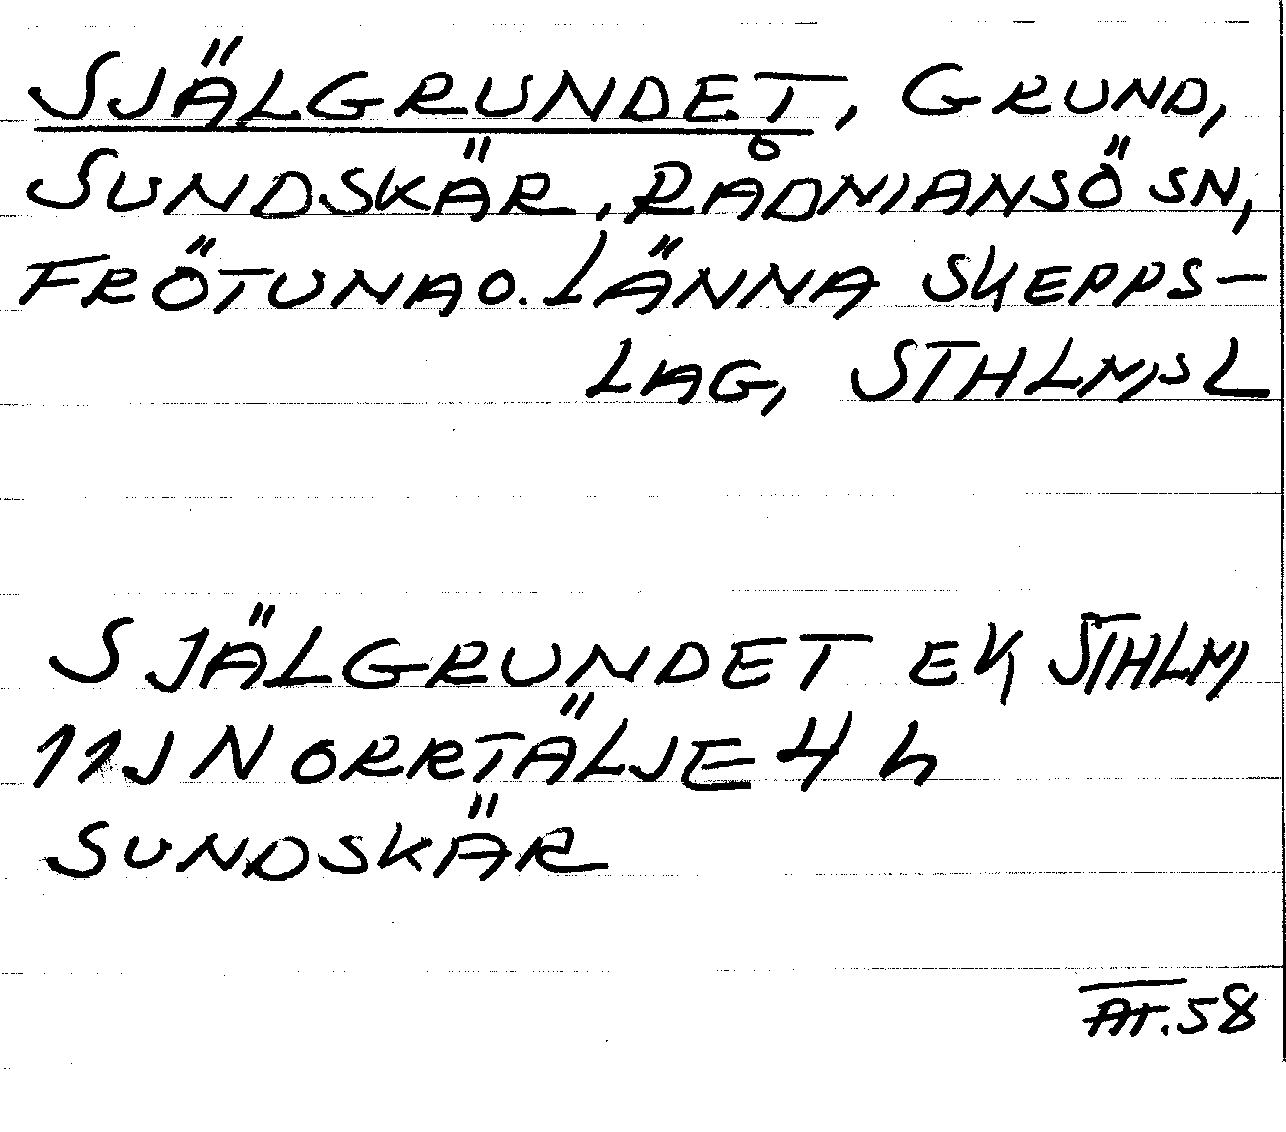 SJÄLGRUNDET, GRUND,
SUNDSKÄR, RÅDMANSÖ SN,
FRÖTUNA O. LÄNNA SKEPPS-
LAG, STHLMS L
SJÄLGRUNDET EK STHLM
11J NORRTÄLJE 4 h
SUNDSKÄR
AT.58